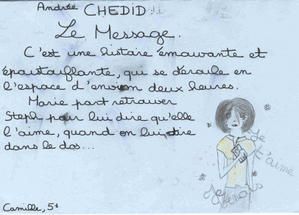 Andrée CHEDID
Le Message.
C'est une histoire émouvante et
époustouflante, qui se déroule en
l'espace d'environ deux heures.
Marie part retrouver
Steph pour lui dire qu'elle
l'aime, quand on lui tire
dans le dos...
de
t'aime
Je
Camille, 5e